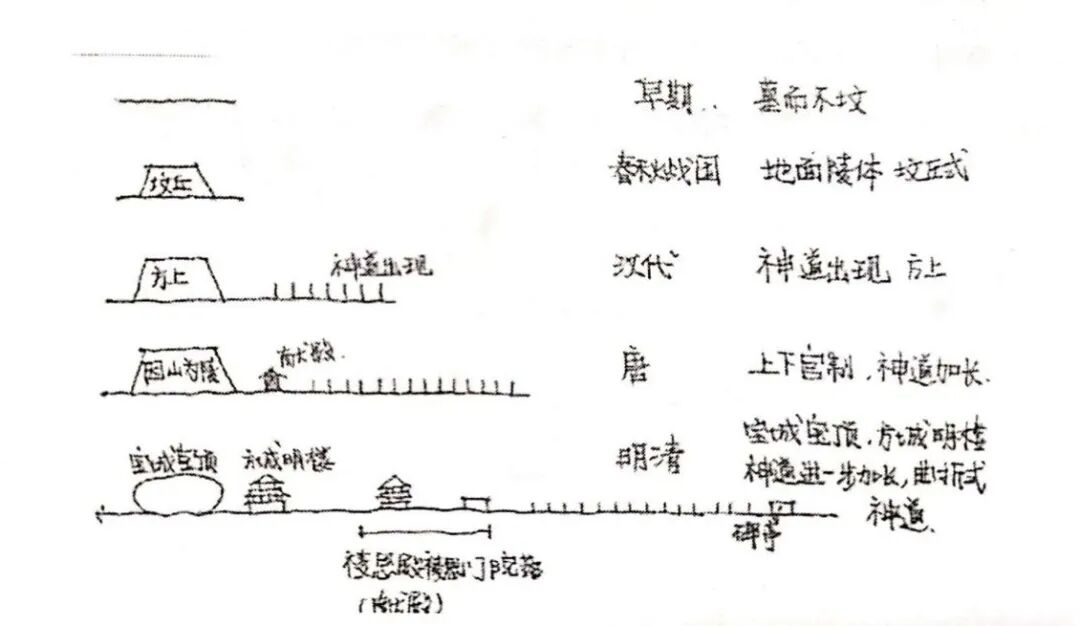 早期.. 墓而不坟
坟丘 春秋战国 地面陵体 坟丘式
神道出现
方上 汉代 神道出现 方上
献殿.
因山为陵 唐 上下宫制，神道加长.
宝城宝顶 方城明楼 明清 宝城宝顶，方城明楼
神道进一步加长，曲折式
神道.
碑亭
祾恩殿祾恩门院落
(献殿)